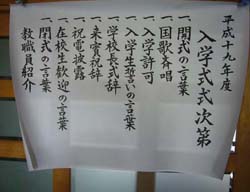 平成十九年度
入学式式次第
一、開式の言葉
一、国歌斉唱
一、入学許可
一、入学生誓いの言葉
一、学校長式辞
一、来賓祝辞
一、祝電披露
一、在校生歓迎の言葉
一、閉式の言葉
教職員紹介